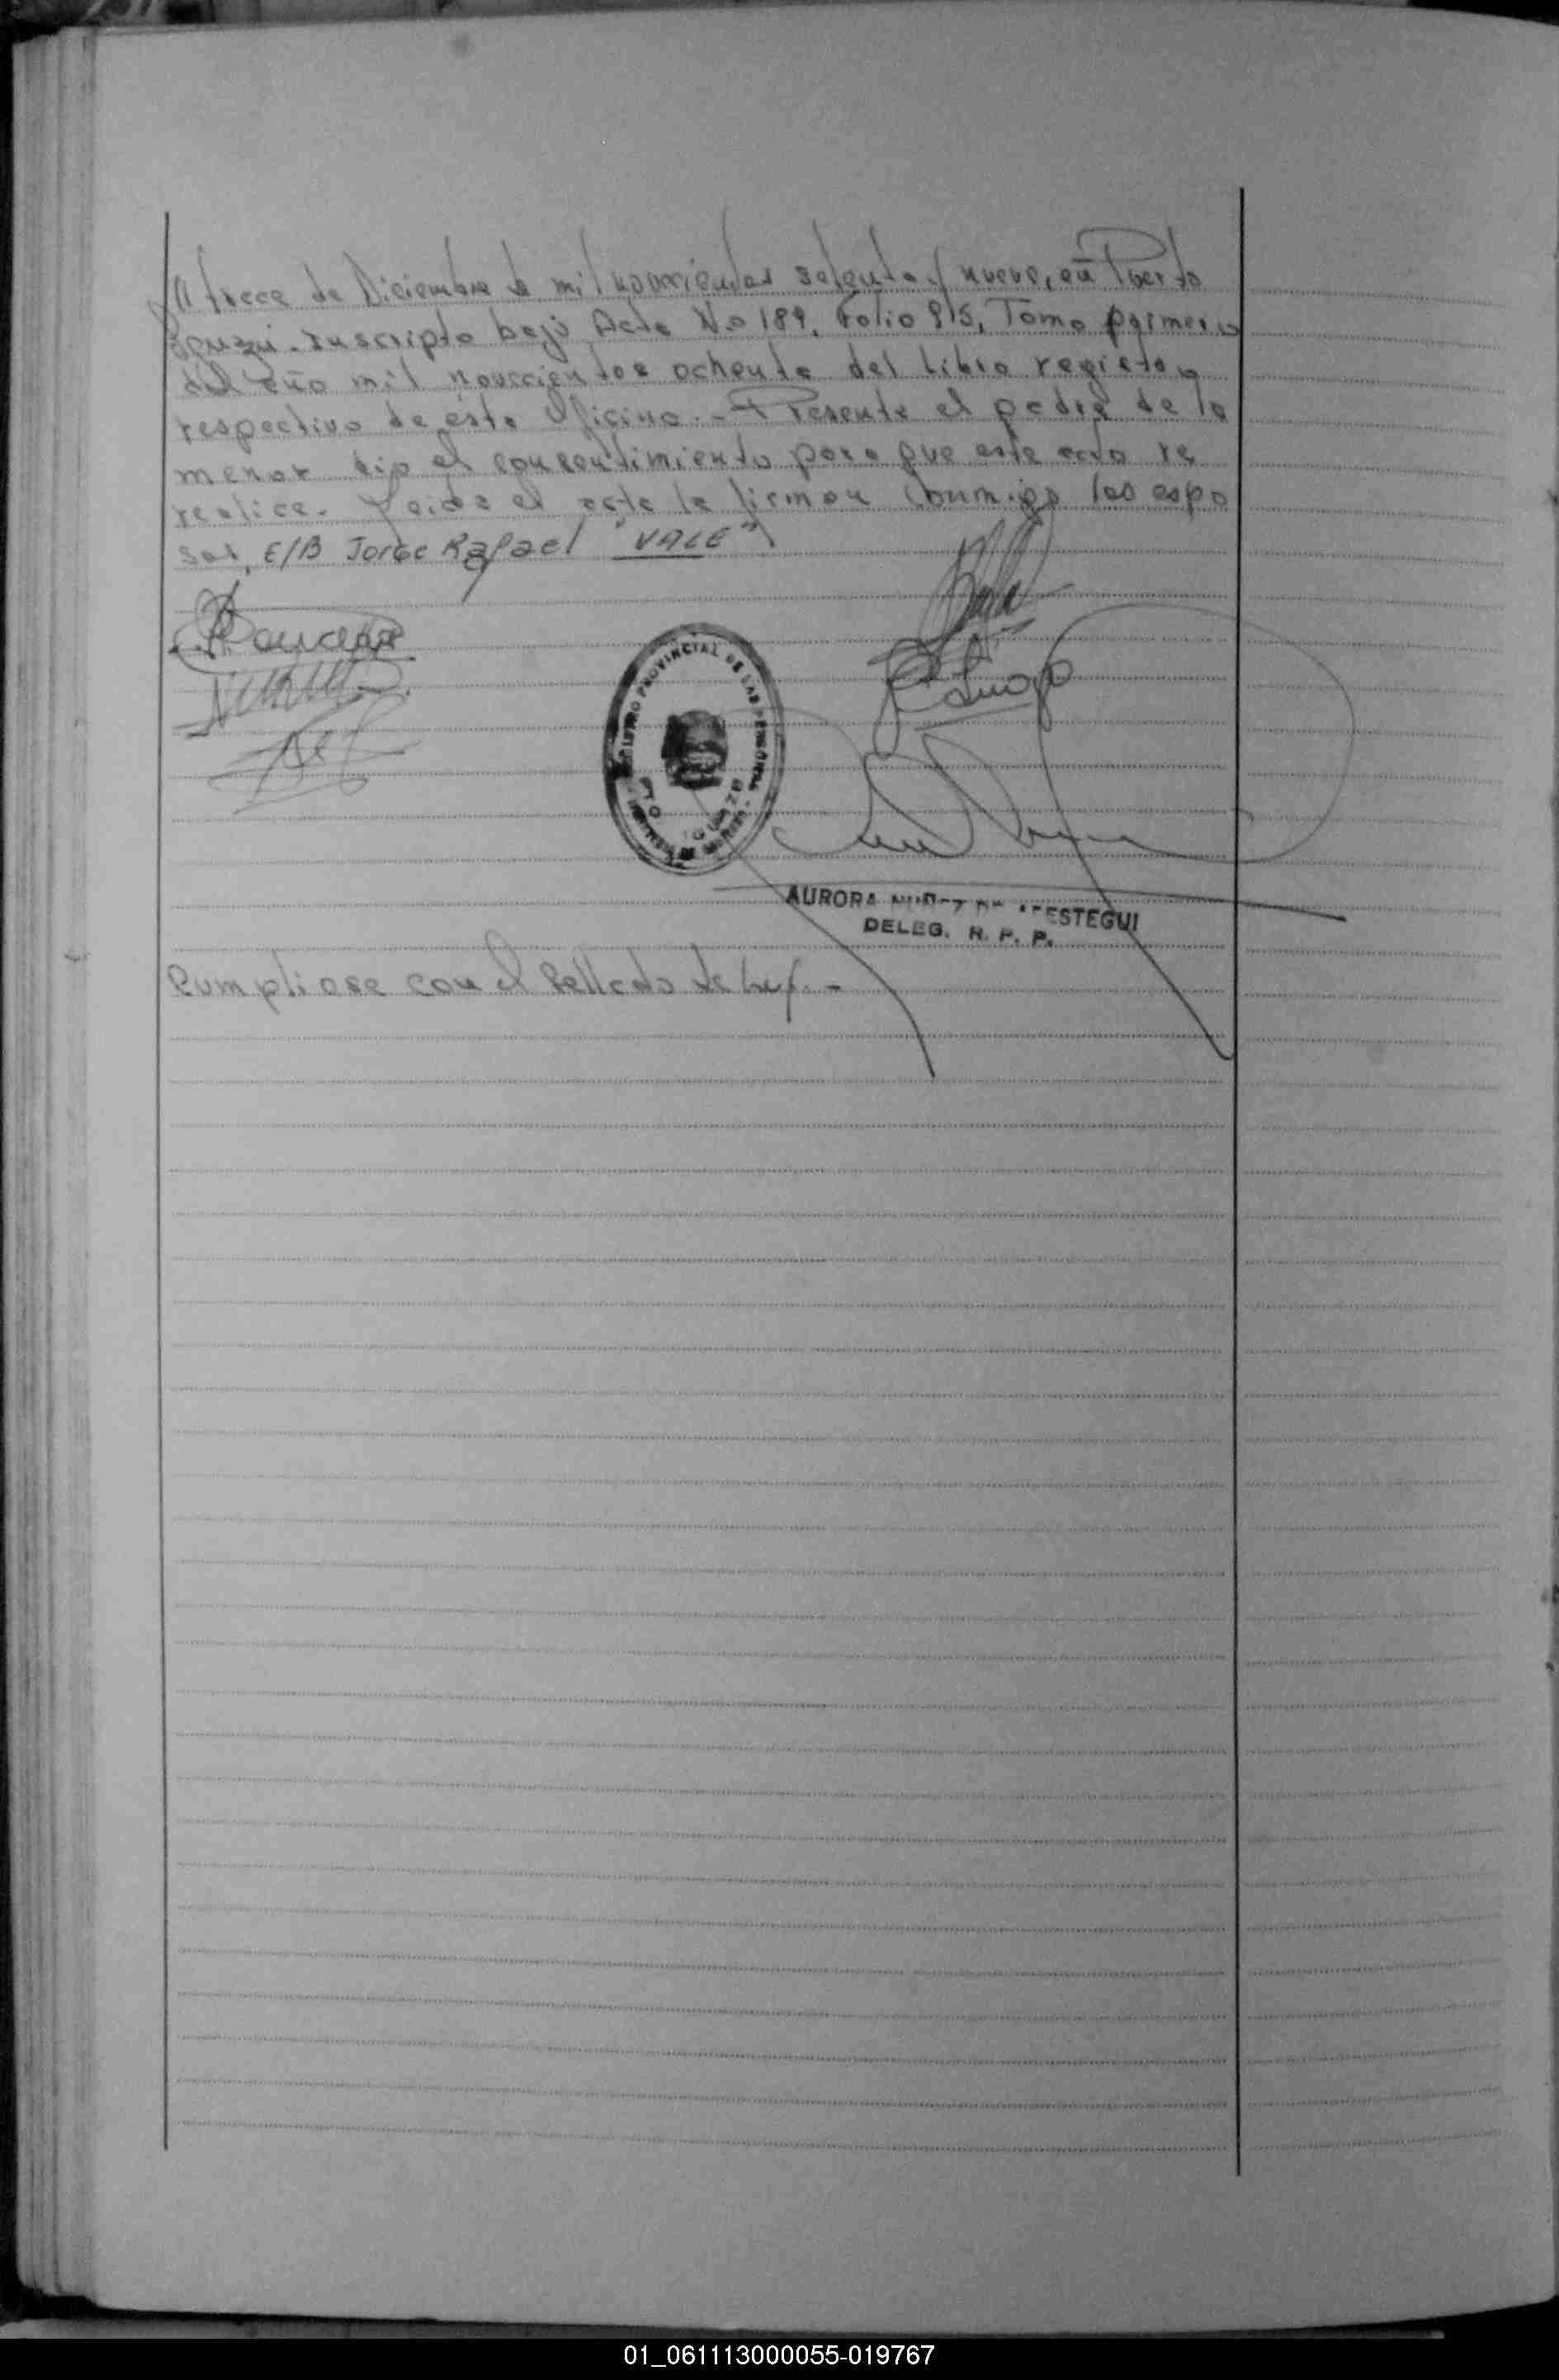 trece de Diciembre de mil novecientos setenta y nueve, en Puerto
Iguazú. inscripto bajo Acta No 189, Folio 95, Tomo primero
del año mil novecientos ochenta del libro registro
respectivo de esta Oficina.- Presente el padre de la
menor dio el consentimiento para que este acto se
realice. Leída el acta la firman conmigo los espo
sos, E/B Jorge Rafael "VALE"
REGISTRO PROVINCIAL DE LAS PERSONAS
IGUAZU
AURORA ESTEGUI
DELEG. R. P. P.
Cumpliose con el sellado de Ley.-
01_061113000055-019767